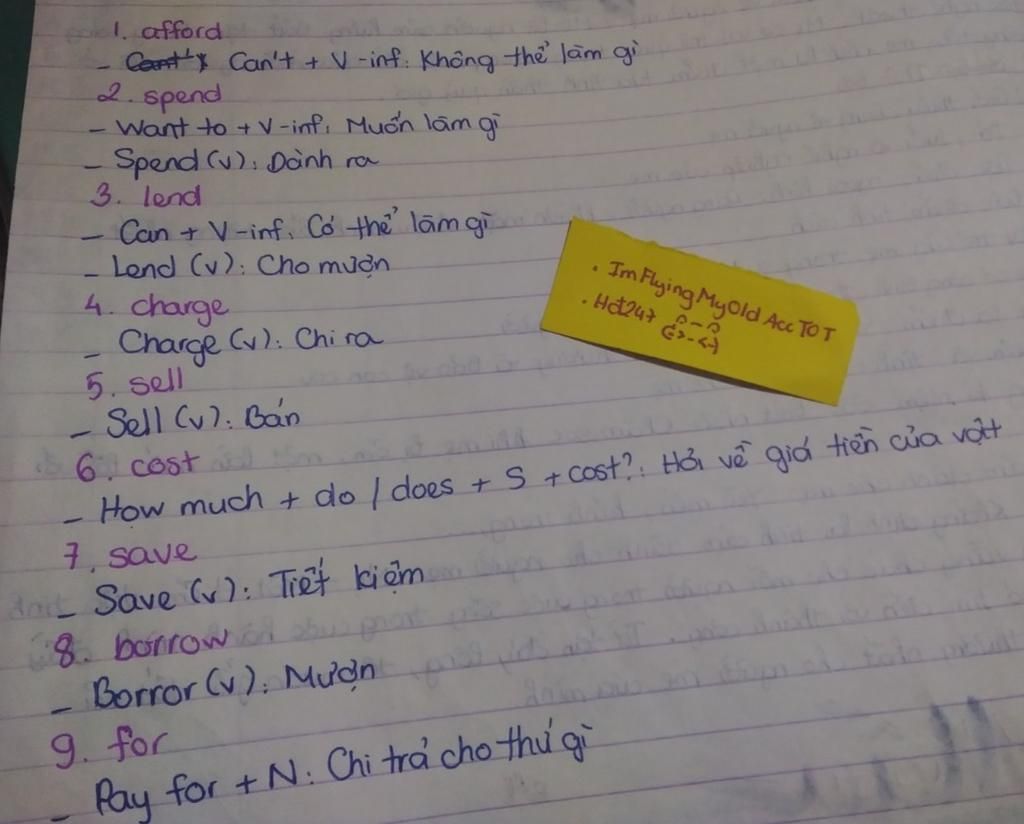 1. afford
- Can't + V-inf: Không thể làm gì
2. spend
- Want to + V-inf: Muốn làm gì
- Spend (v): Dành ra
3. lend
- Can + V-inf: Có thể làm gì
- Lend (v): Cho mượn
4. charge
- Charge (v): Chi ra
5. sell
- Sell (v): Bán
6. cost
- How much + do / does + S + cost?: Hỏi về giá tiền của vật
7. save
- Save (v): Tiết kiệm
8. borrow
- Borror (v): Mượn
9. for
- Pay for + N: Chi trả cho thứ gì
. ImFlyingMyOldAccTOT
. Hdt247